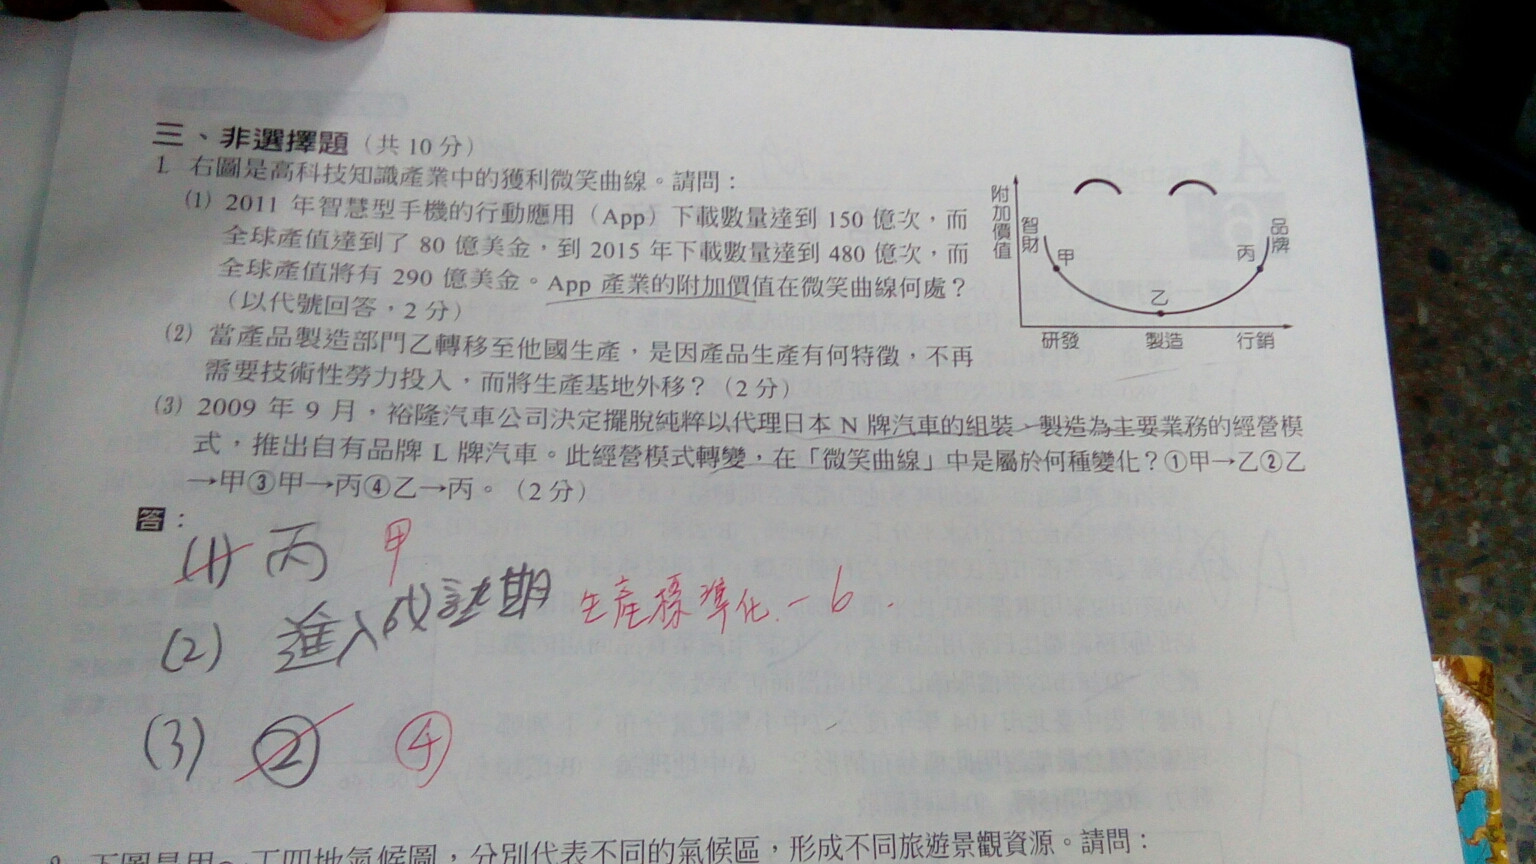 三、非選擇題（共 10 分）
1. 右圖是高科技知識產業中的獲利微笑曲線。請問：
(1) 2011 年智慧型手機的行動應用（App）下載數量達到 150 億次，而
全球產值達到了 80 億美金，到 2015 年下載數量達到 480 億次，而
全球產值將有 290 億美金。App 產業的附加價值在微笑曲線何處？
（以代號回答，2 分）
(2) 當產品製造部門乙轉移至他國生產，是因產品生產有何特徵，不再
需要技術性勞力投入，而將生產基地外移？（2 分）
(3) 2009 年 9 月，裕隆汽車公司決定擺脫純粹以代理日本 N 牌汽車的組裝、製造為主要業務的經營模
式，推出自有品牌 L 牌汽車。此經營模式轉變，在「微笑曲線」中是屬於何種變化？①甲→乙②乙
→甲③甲→丙④乙→丙。（2 分）
附加價值
智財
甲
乙
丙
品牌
研發 製造 行銷
答：
(1) 丙 甲
(2) 進入成熟期 生產標準化 -6.
(3) ② ④
下圖是甲～丁四地氣候圖，分別代表不同的氣候區，形成不同旅遊景觀資源。請問：